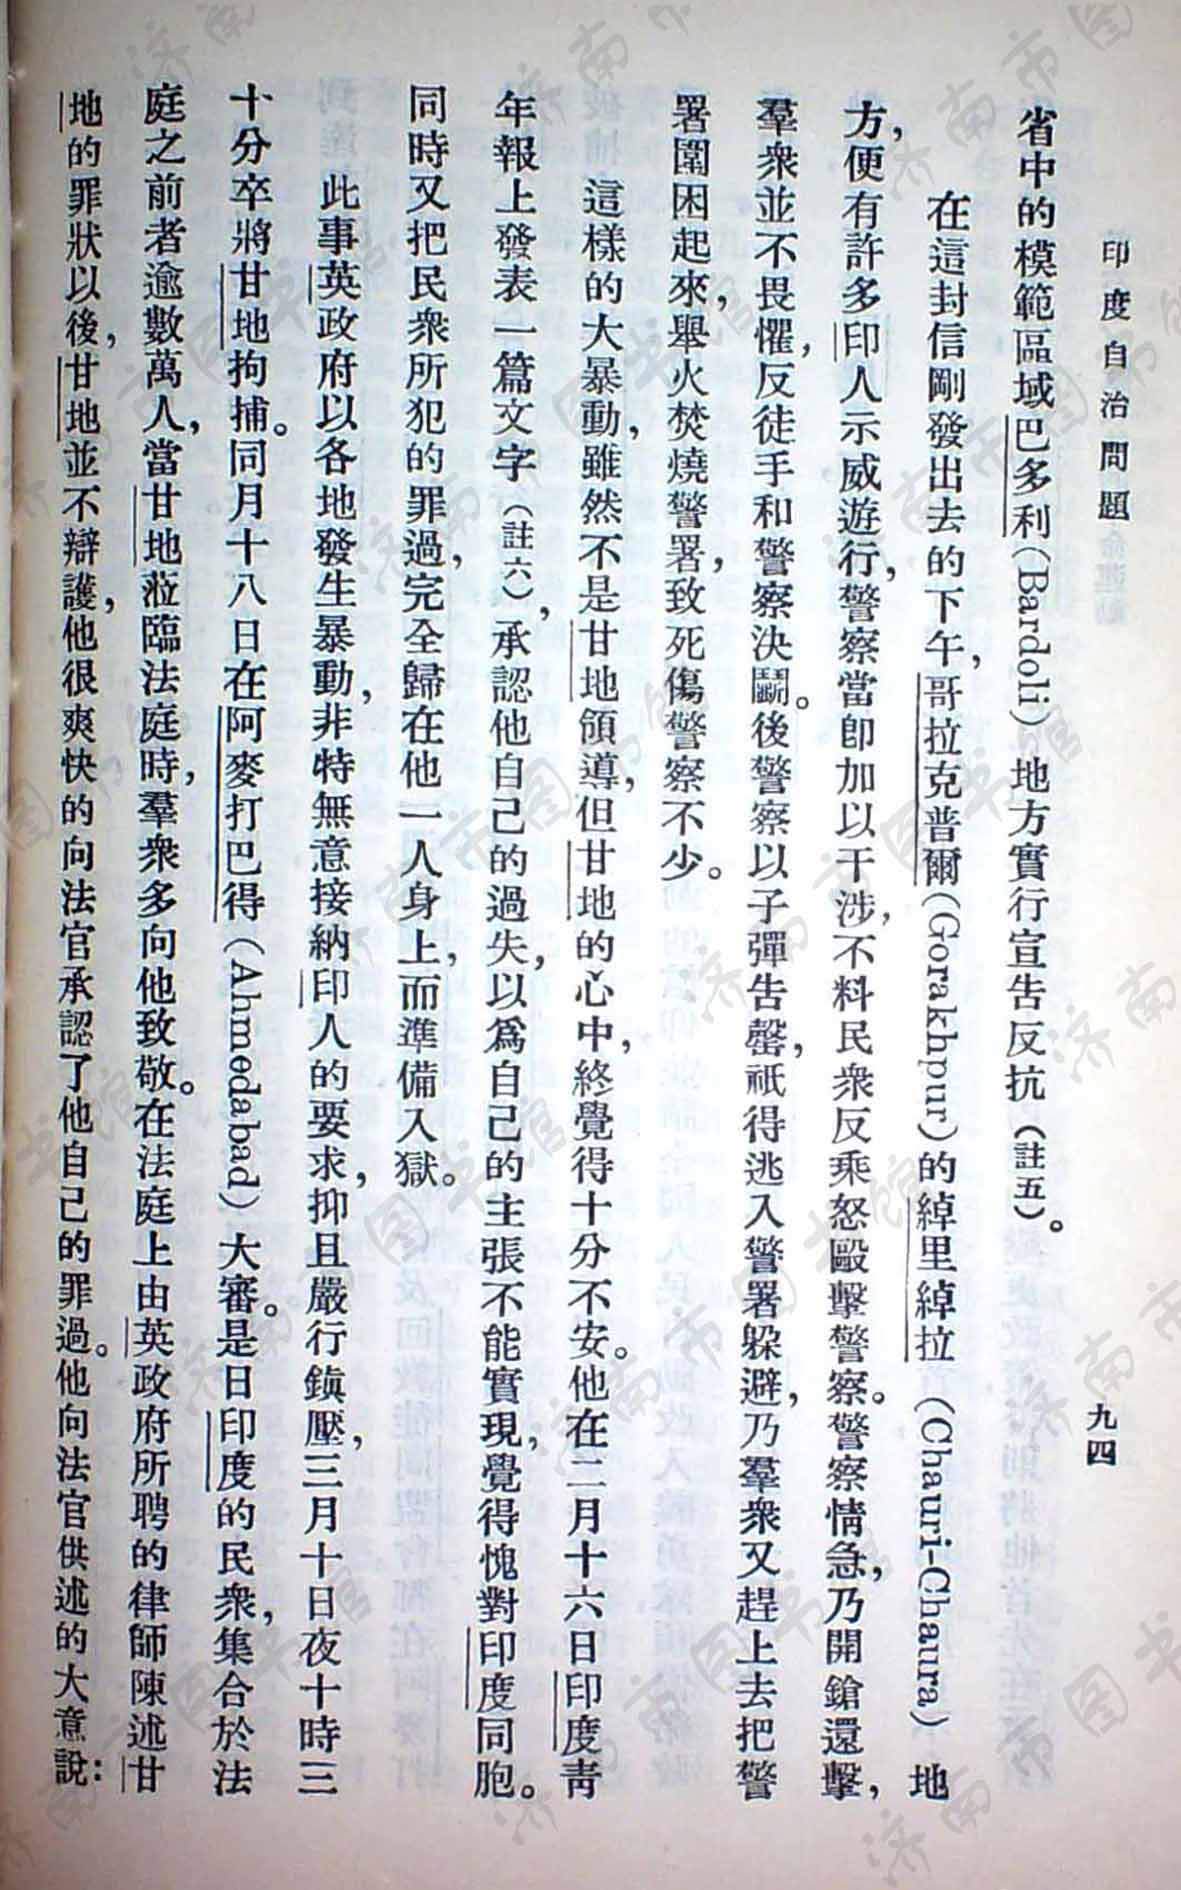 印度自治問題
九四
省中的模範區域巴多利(Bardoli)地方實行宣告反抗(註五)。
在這封信剛發出去的下午,哥拉克普爾(Gorakhpur)的綽里綽拉(Chauri-Chaura)地
方,便有許多印人示威遊行,警察當卽加以干涉,不料民衆反乘怒毆擊警察。警察情急,乃開鎗還擊,
羣衆並不畏懼,反徒手和警察決鬭。後警察以子彈告罄,祇得逃入警署躱避,乃羣衆又趕上去把警
署圍困起來,舉火焚燒警署,致死傷警察不少。
這樣的大暴動,雖然不是甘地領導,但甘地的心中,終覺得十分不安。他在二月十六日印度靑
年報上發表一篇文字(註六),承認他自己的過失,以爲自己的主張不能實現,覺得愧對印度同胞。
同時又把民衆所犯的罪過,完全歸在他一人身上,而準備入獄。
此事英政府以各地發生暴動,非特無意接納印人的要求,抑且嚴行鎭壓,三月十日夜十時三
十分卒將甘地拘捕。同月十八日在阿麥打巴得(Ahmedabad)大審。是日印度的民衆,集合於法
庭之前者逾數萬人,當甘地蒞臨法庭時,羣衆多向他致敬。在法庭上由英政府所聘的律師陳述甘
地的罪狀以後,甘地並不辯護,他很爽快的向法官承認了他自己的罪過。他向法官供述的大意說:
济南市图书馆